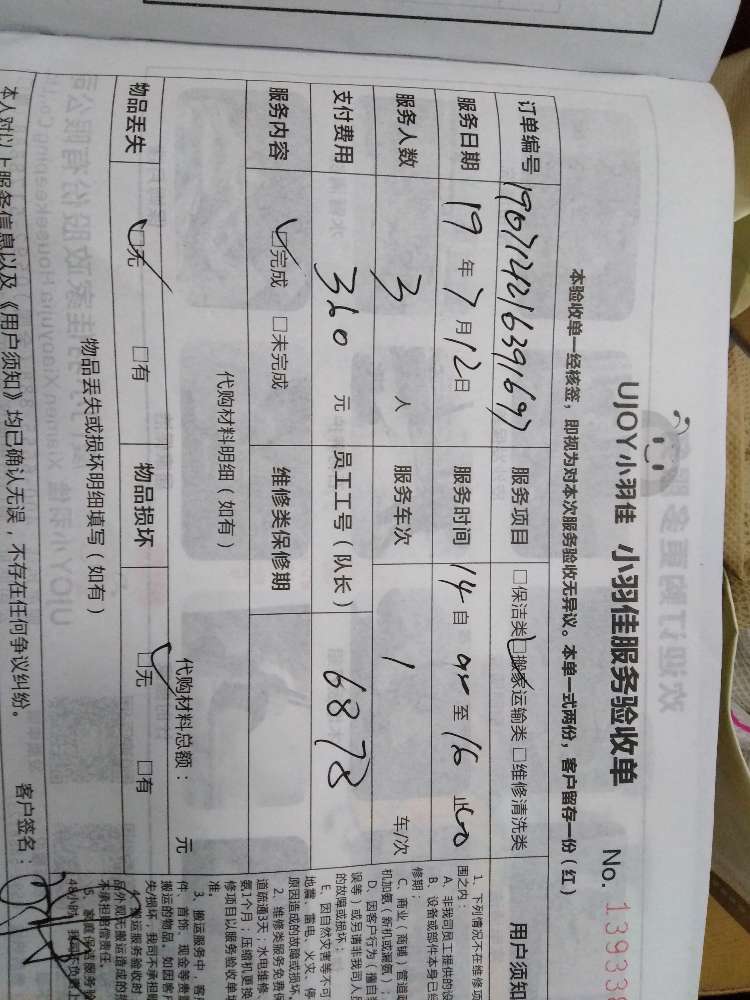 UJOY小羽佳 小羽佳服务验收单 No. 13933
本验收单一经核签，即视为对本次服务验收无异议。本单一式两份，客户留存一份（红）
订单编号 服务项目 □保洁类 □搬家运输类 □维修清洗类
服务日期 19 年 7 月 12 日 服务时间 14 自 至 16 止 00
服务人数 3 人 服务车次 1 车/次
支付费用 360 元 员工工号（队长） 6878
服务内容 □完成 □未完成 维修类保修期
代购材料明细（如有）
代购材料总额： 元
物品丢失 □无 □有 物品损坏 □无 □有
物品丢失或损坏明细填写（如有）
本人对以上服务信息以及《用户须知》均已确认无误，不存在任何争议纠纷。
客户签名：
用户须知
1、下列情况不在维修项
围之内：
A、非我司员工提供的设
B、设备或部件本身已经
修期；
C、商业（商铺）管道疏
机加氨（新机或漏氨）；
D、因客户行为（擅自
误等）或另请非我司人员
的故障或损坏；
E、因自然灾害等不可
地震、雷电、火灾、停
原因造成的故障或损坏。
2、维修类服务免费保
道疏通3天；水电维修、
氨1个月；压缩机更换
修项目以服务验收单
准。
3、搬运服务中，客户
件、首饰、现金等贵重
搬运的物品，如因客户
失损坏，我司不承担赔
4、搬运服务验收时
品外观无搬运造成的损
不承担赔偿责任。
5、家庭保洁服务验
48小时，我司不负责上